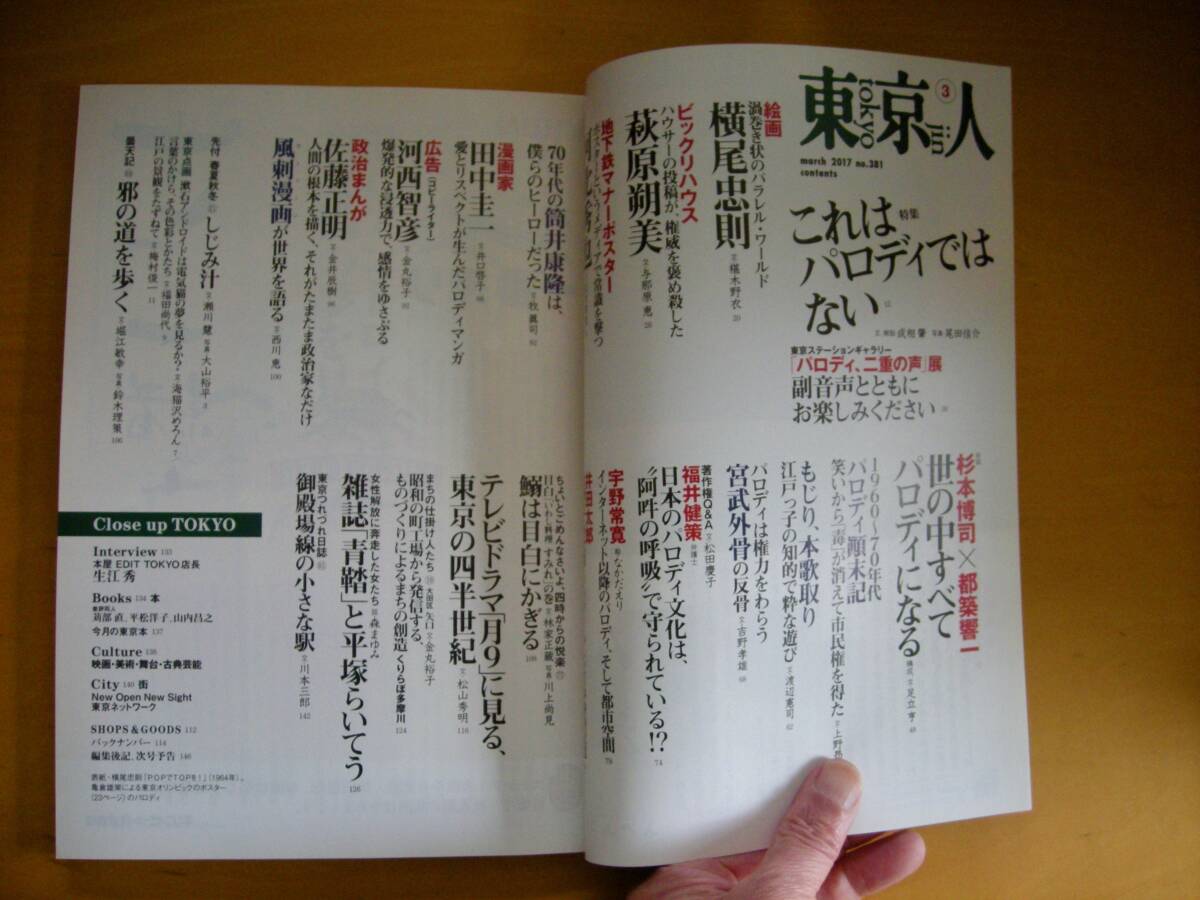 東京人
tokyo
jin
③
march 2017 no.381
contents
特集
これは
パロディでは
ない
文・解説 成相 肇 写真 尾田信介
東京ステーションギャラリー
「パロディ、二重の声」展
副音声とともに
お楽しみください
絵画
渦巻き状のパラレル・ワールド
横尾忠則
文・椹木野衣 20
ビックリハウス
ハウサーの投稿が、権威を褒め殺した
萩原朔美
文・与那原 恵 28
地下鉄マナーポスター
杉本博司×都築響一
世の中すべて
パロディになる
構成・文・足立 亨 48
1960〜70年代
パロディ顚末記
笑いから「毒」が消えて市民権を得た
もじり、本歌取り
江戸っ子の知的で粋な遊び 文・渡辺憲司 62
パロディは権力をわらう
宮武外骨の反骨
文・吉野孝雄 68
著作権Q&A 文・松田慶子
福井健策 弁護士
日本のパロディ文化は、
"阿吽の呼吸"で守られている!? 74
宇野常寛 絵・なかだえり
インターネット以降のパロディ、そして都市空間 78
井田太郎
70年代の筒井康隆は、
僕らのヒーローだった 文・牧 眞司 82
漫画家
田中圭一 文・井口啓子 88
愛とリスペクトが生んだパロディマンガ
広告(コピーライター)
河西智彦 文・金丸裕子 92
爆発的な浸透力で、感情をゆさぶる
政治まんが
佐藤正明 文・金井辰樹 96
人間の根本を描く、それがたまたま政治家なだけ
風刺漫画が世界を語る 文・西川 恵 100
先付 春夏秋冬 しじみ汁 文・瀬川 慧 写真・大山裕平
東京点画 漱石アンドロイドは電気猫の夢を見るか? 文・海猫沢めろん 7
言葉のかけら、その色彩とかたち 文・福田尚代 9
江戸の景観をたずねて 文・梅村俊一 11
曇天記 邪の道を歩く 文・堀江敏幸 写真・鈴木理策 106
ちょいとごめんなさいよ、四時からの悦楽
目白「いわし料理 すみれ」の巻 文・林家正蔵 写真・川上尚見
鰯は目白にかぎる 108
テレビドラマ「月9」に見る、
東京の四半世紀 文・松山秀明 116
まちの仕掛け人たち 大田区 矢口 文・金丸裕子
昭和の町工場から発信する、
ものづくりによるまちの創造 くりらぼ多摩川 124
女性解放に奔走した女たち 文・森まゆみ
雑誌「青鞜」と平塚らいてう 126
東京つれづれ日誌
御殿場線の小さな駅 文・川本三郎 142
Close up TOKYO
Interview 133
本屋 EDIT TOKYO店長
生江 秀
Books 134 本
苅部 直、平松洋子、山内昌之
今月の東京本 137
Culture 138
映画・美術・舞台・古典芸能
City 140 街
New Open New Sight
東京ネットワーク
SHOPS & GOODS 112
バックナンバー 114
編集後記、次号予告 146
表紙・横尾忠則「POPでTOPを!」(1964年)。
亀倉雄策による東京オリンピックのポスター
(23ページ)のパロディ